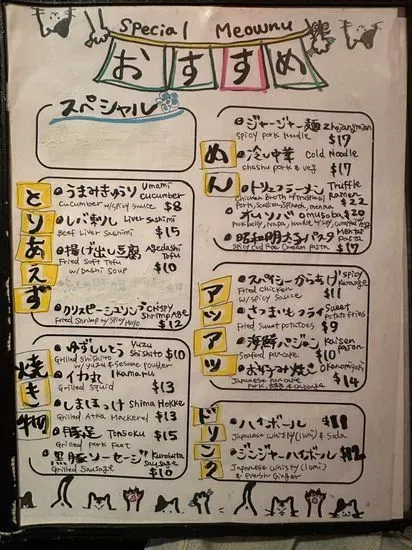 Special Meownu
おすすめ
スペシャル
とりあえず
うまみきゅうり Umami cucumber
cucumber w/spicy sauce $8
レバ刺し Liver Sashimi
Beef Liver Sashimi $15
揚げ出し豆腐 Agedashi Tofu
Fried Soft Tofu w/Dashi Soup $10
クリスピーシュリンプ Crispy Shrimp
Fried Shrimp w/Spicy Mayo $12
焼き物
ゆずししとう Yuzu Shishito $10
Grilled Shishito w/yuzu & sesame powder
イカ丸 Ikamaru
Grilled Squid $13
しまほっけ Shima Hokke
Grilled Atka Mackerel $13
豚足 Tonsoku $15
Grilled pork Feet
黒豚ソーセージ Kurobuta Sausage
Grilled Sausage $10
めん
ジャージャー麺 Zhajangmian
Spicy pork Noodle $17
冷し中華 Cold Noodle
chashu pork & veg $17
トリュフラーメン Truffle Ramen
$22
オムソバ Omusoba $20
昭和明太子パスタ Mentai Pasta
Spicy Cod Roe Cream Pasta $17
アツアツ
スパイシーからあげ Spicy Karaage
Fried Chicken w/Spicy Sauce $11
さつまいもフライ Sweet Potato Fries
Fried Sweet potatoes $9
海鮮パジョン Kaisen Pajon
Seafood pancake $10
お好み焼き Okonomiyaki
Japanese pancake $14
ドリンク
ハイボール $11
Japanese whisky (Iwai) & Soda
ジンジャーハイボール $12
Japanese whisky (Iwai) & Fresh Ginger